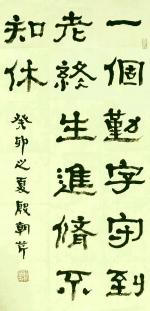 一個勤字守到
老終生進脩不
知休
癸卯之夏殷朝芹